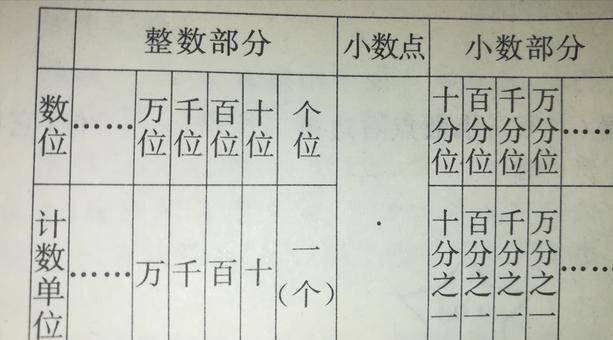 整数部分 小数点 小数部分
数位 …… 万位 千位 百位 十位 个位 十分位 百分位 千分位 万分位 ……
计数单位 …… 万 千 百 十 一(个) · 十分之一 百分之一 千分之一 万分之一 ……